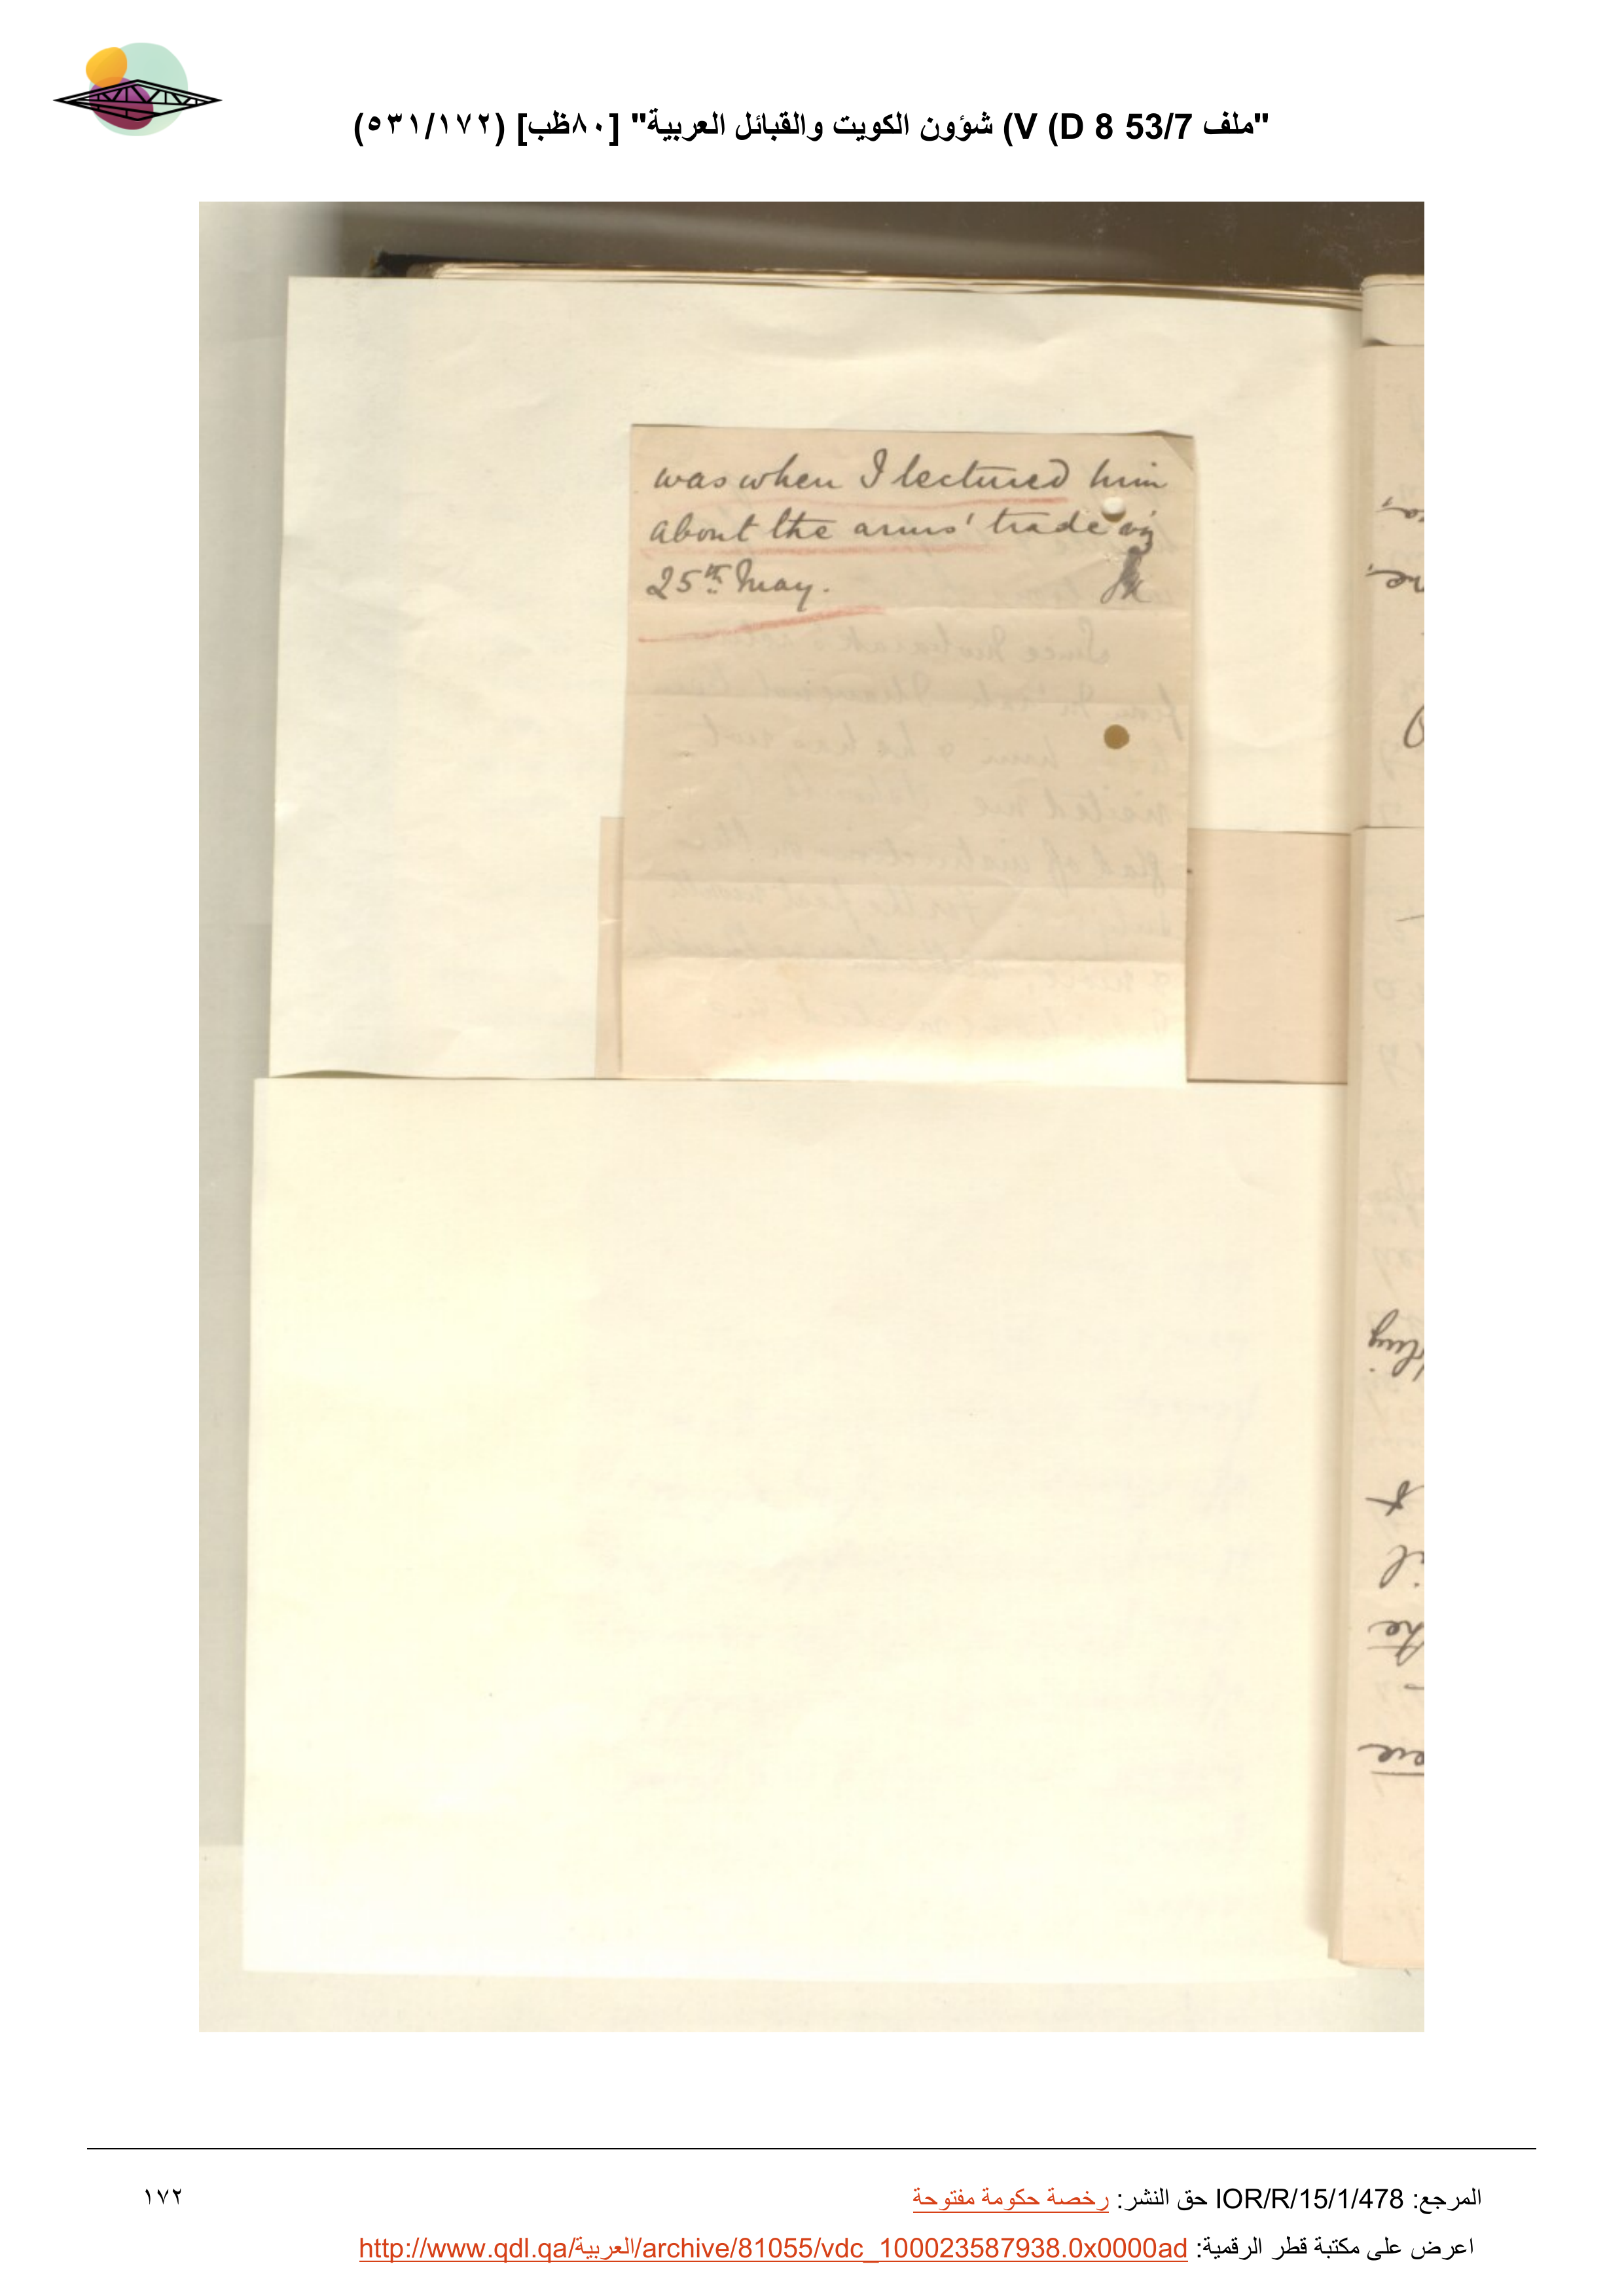 "ملف 53/7 D 8) V) شؤون الكويت والقبائل العربية" [٨٠ظب] (٥٣١/١٧٢)
was when I lectured him
about the arms' trade viz
25th May.
المرجع: IOR/R/15/1/478 حق النشر: رخصة حكومة مفتوحة
١٧٢
اعرض على مكتبة قطر الرقمية: http://www.qdl.qa/العربية/archive/81055/vdc_100023587938.0x0000ad